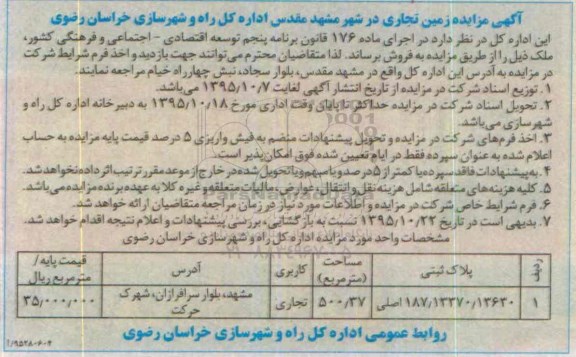 آگهی مزایده زمین تجاری در شهر مشهد مقدس اداره کل راه و شهرسازی خراسان رضوی
این اداره کل در نظر دارد در اجرای ماده ۱۷۶ قانون برنامه پنجم توسعه اقتصادی - اجتماعی و فرهنگی کشور،
ملک ذیل را از طریق مزایده به فروش برساند. لذا متقاضیان محترم می‌توانند جهت بازدید و اخذ فرم شرایط شرکت
در مزایده به آدرس این اداره کل واقع در مشهد مقدس، بلوار سجاد، نبش چهارراه خیام مراجعه نمایند.
۱. توزیع اسناد شرکت در مزایده از تاریخ انتشار آگهی لغایت ۱۳۹۵/۱۰/۷ می‌باشد.
۲. تحویل اسناد شرکت در مزایده حداکثر تا پایان وقت اداری مورخ ۱۳۹۵/۱۰/۱۸ به دبیرخانه اداره کل راه و
شهرسازی می‌باشد.
۳. اخذ فرم‌های شرکت در مزایده و تحویل پیشنهادات منضم به فیش واریزی ۵ درصد قیمت پایه مزایده به حساب
اعلام شده به عنوان سپرده فقط در ایام تعیین شده فوق امکان‌پذیر است.
۴. به پیشنهادات فاقد سپرده یا کمتر از ۵ درصد و یا مبهم و یا تحویل شده در خارج از موعد مقرر ترتیب اثر داده نخواهد شد.
۵. کلیه هزینه‌های متعلقه شامل هزینه نقل و انتقال، عوارض، مالیات متعلقه و غیره کلا به عهده برنده مزایده می‌باشد.
۶. فرم شرایط خاص شرکت در مزایده و اطلاعات مورد نیاز در زمان مراجعه متقاضیان ارائه خواهد شد.
۷. بدیهی است در تاریخ ۱۳۹۵/۱۰/۲۲ نسبت به بازگشایی، بررسی پیشنهادات و اعلام نتیجه اقدام خواهد شد.
مشخصات واحد مورد مزایده اداره کل راه و شهرسازی خراسان رضوی
ردیف پلاک ثبتی مساحت (مترمربع) کاربری آدرس قیمت پایه / مترمربع ریال
۱ ۱۸۷/۱۳۲۷۰/۱۳۶۳۰ اصلی ۵۰۰/۳۷ تجاری مشهد، بلوار سرافرازان، شهرک حرکت ۳۵/۰۰۰/۰۰۰
روابط عمومی اداره کل راه و شهرسازی خراسان رضوی